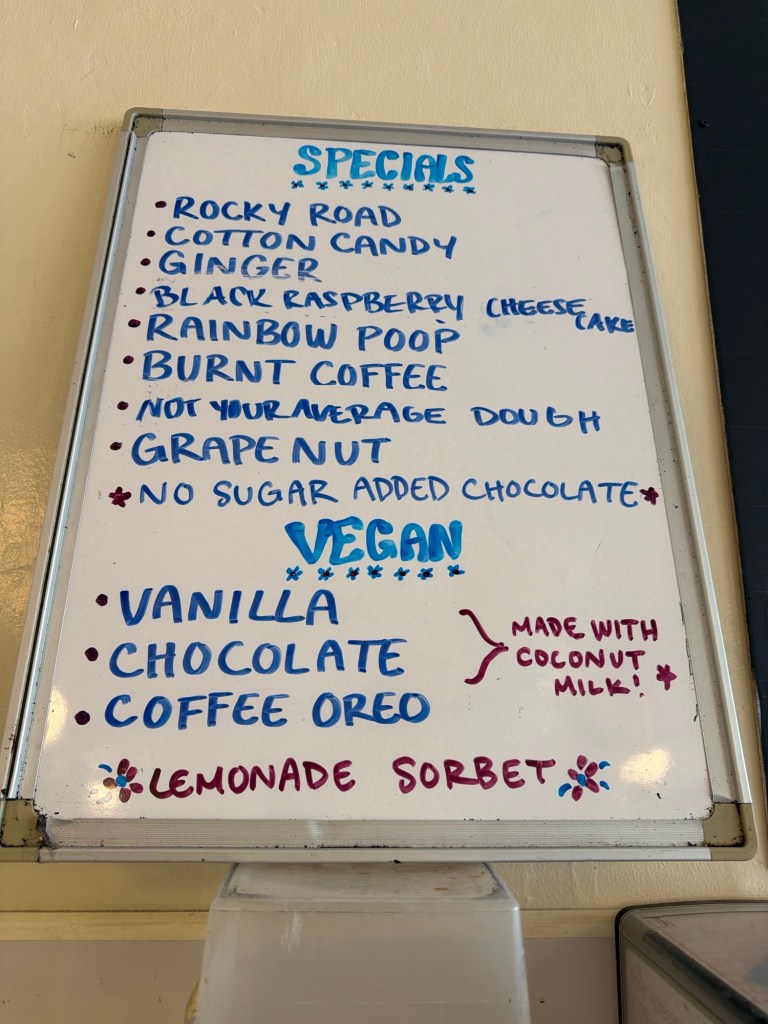 SPECIALS
ROCKY ROAD
COTTON CANDY
GINGER
BLACK RASPBERRY CHEESE
CAKE
RAINBOW POOP
BURNT COFFEE
NOT YOUR AVERAGE DOUGH
GRAPE NUT
NO SUGAR ADDED CHOCOLATE
VEGAN
VANILLA
CHOCOLATE
COFFEE OREO
MADE WITH
COCONUT
MILK!
LEMONADE SORBET